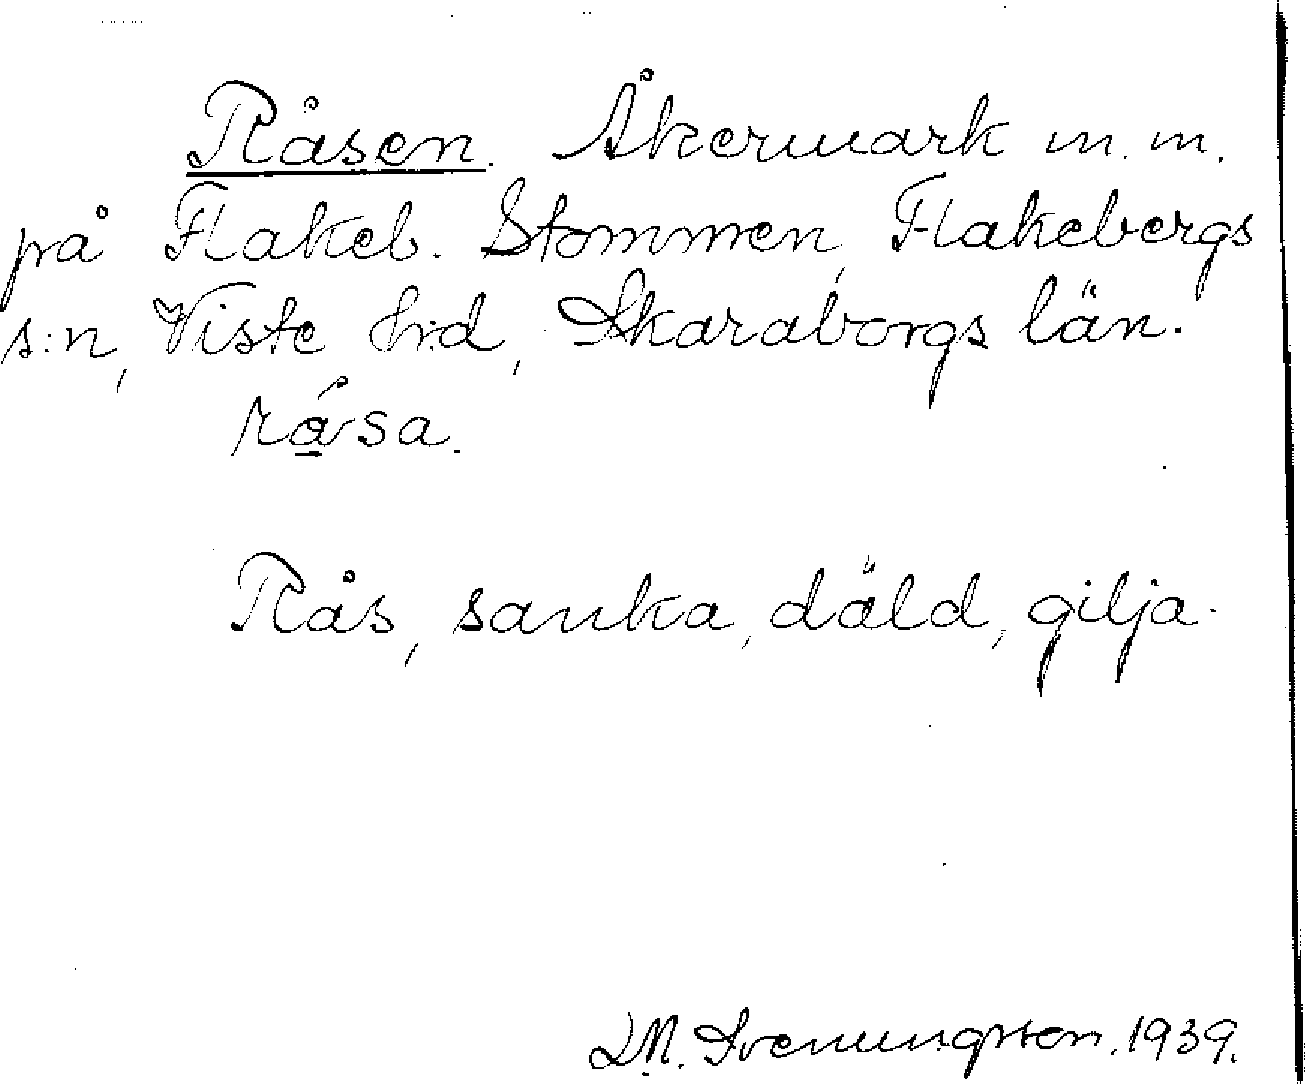 Råsen. Åkermark m. m.
på Flakeb. Stommen, Flakebergs
s:n, Viste h:d, Skaraborgs län.
råsa.
Rås, sanka, däld, gilja.
D.M. Svenungsson. 1939.